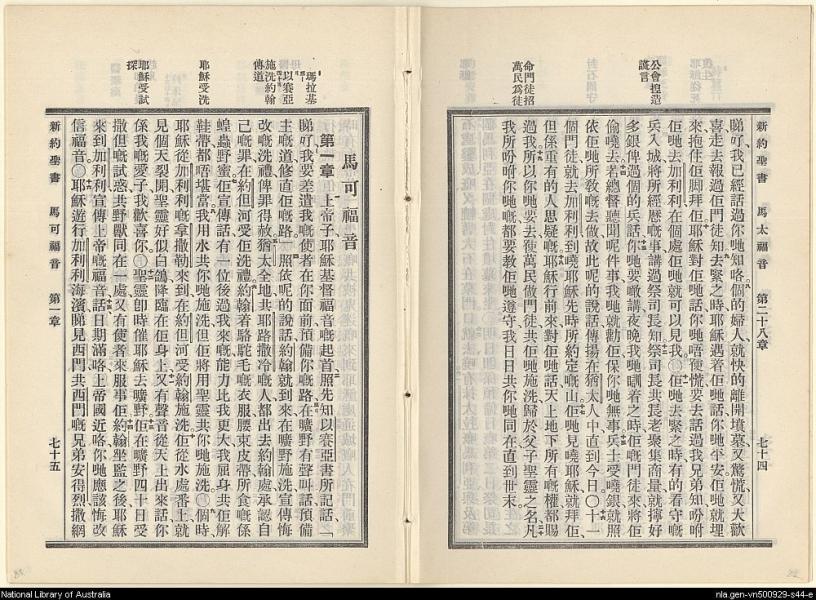 新約聖書 馬太福音 第二十八章 七十四
公會揑造
謊言
命門徒招
萬民爲徒
睇吓我已經話過你哋知咯個的婦人就快的離開墳墓又驚慌又大歡
喜走去報過佢門徒知去緊之時耶穌遇着佢哋話你哋平安佢哋就埋
來抱住佢脚拜佢耶穌對佢哋話你哋唔使慌要去話過我兄弟知吩咐
佢哋去加利利在個處佢哋就可以見我〇佢哋去緊之時有的看守嘅
兵入城將所經歷嘅事講過祭司長知祭司長共長老聚集商量就擰好
多銀俾過個的兵話你哋要噉講夜晚我哋瞓着之時佢嘅門徒來將佢
偷嘵去若總督聽聞呢件事我哋就勸佢保你哋無事兵士受嘵銀就照
依佢哋所教嘅去做故此呢的說話傳揚在猶太人中直到今日〇十一
個門徒就去加利利到嘵耶穌先時所約定嘅山佢哋見嘵耶穌就拜佢
但係重有的人思疑嘅耶穌行前來對佢哋話天上地下所有嘅權都賜
過我所以你哋要去使萬民做門徒共佢哋施洗歸於父子聖靈之名凡
我所吩咐你哋嘅都要教佢哋遵守我日日共你哋同在直到世末
瑪拉基
以賽亞
施洗約翰
傳道
耶穌受洗
耶穌受試
探
馬可福音
第一章 上帝子耶穌基督福音嘅起首照先知以賽亞書所記話
睇吓我要差遣我嘅使者在你面前預備你嘅路在曠野有聲叫話預備
主嘅道修直佢嘅路一照依呢的說話約翰就到來在曠野施洗宣傳悔
改嘅洗禮俾罪得赦猶太全地共耶路撒冷嘅人都出去約翰處承認自
己嘅罪在約但河受佢洗禮約翰着駱駝毛嘅衣服腰束皮帶所食嘅係
蝗蟲野蜜佢宣傳話有一位後過我來嘅能力比我更大我屈身共佢解
鞋帶都唔堪當我用水共你哋施洗但佢將用聖靈共你哋施洗〇個時
耶穌從加利利嘅拿撒勒來到在約但河受約翰施洗佢從水處番上就
見個天裂開聖靈好似白鴿降臨在佢身上又有聲音從天上出來話你
係我嘅愛子我歡喜你〇聖靈卽時催耶穌去曠野佢在曠野四十日受
撒但嘅試惑共野獸同在一處又有使者來服事佢約翰坐監之後耶穌
來到加利利宣傳上帝嘅福音話日期滿咯上帝國近咯你哋應該悔改
信福音〇耶穌遊行加利利海濱睇見西門共西門嘅兄弟安得烈撒網
新約聖書 馬可福音 第一章 七十五
National Library of Australia
nla.gen-vn500929-s44-e